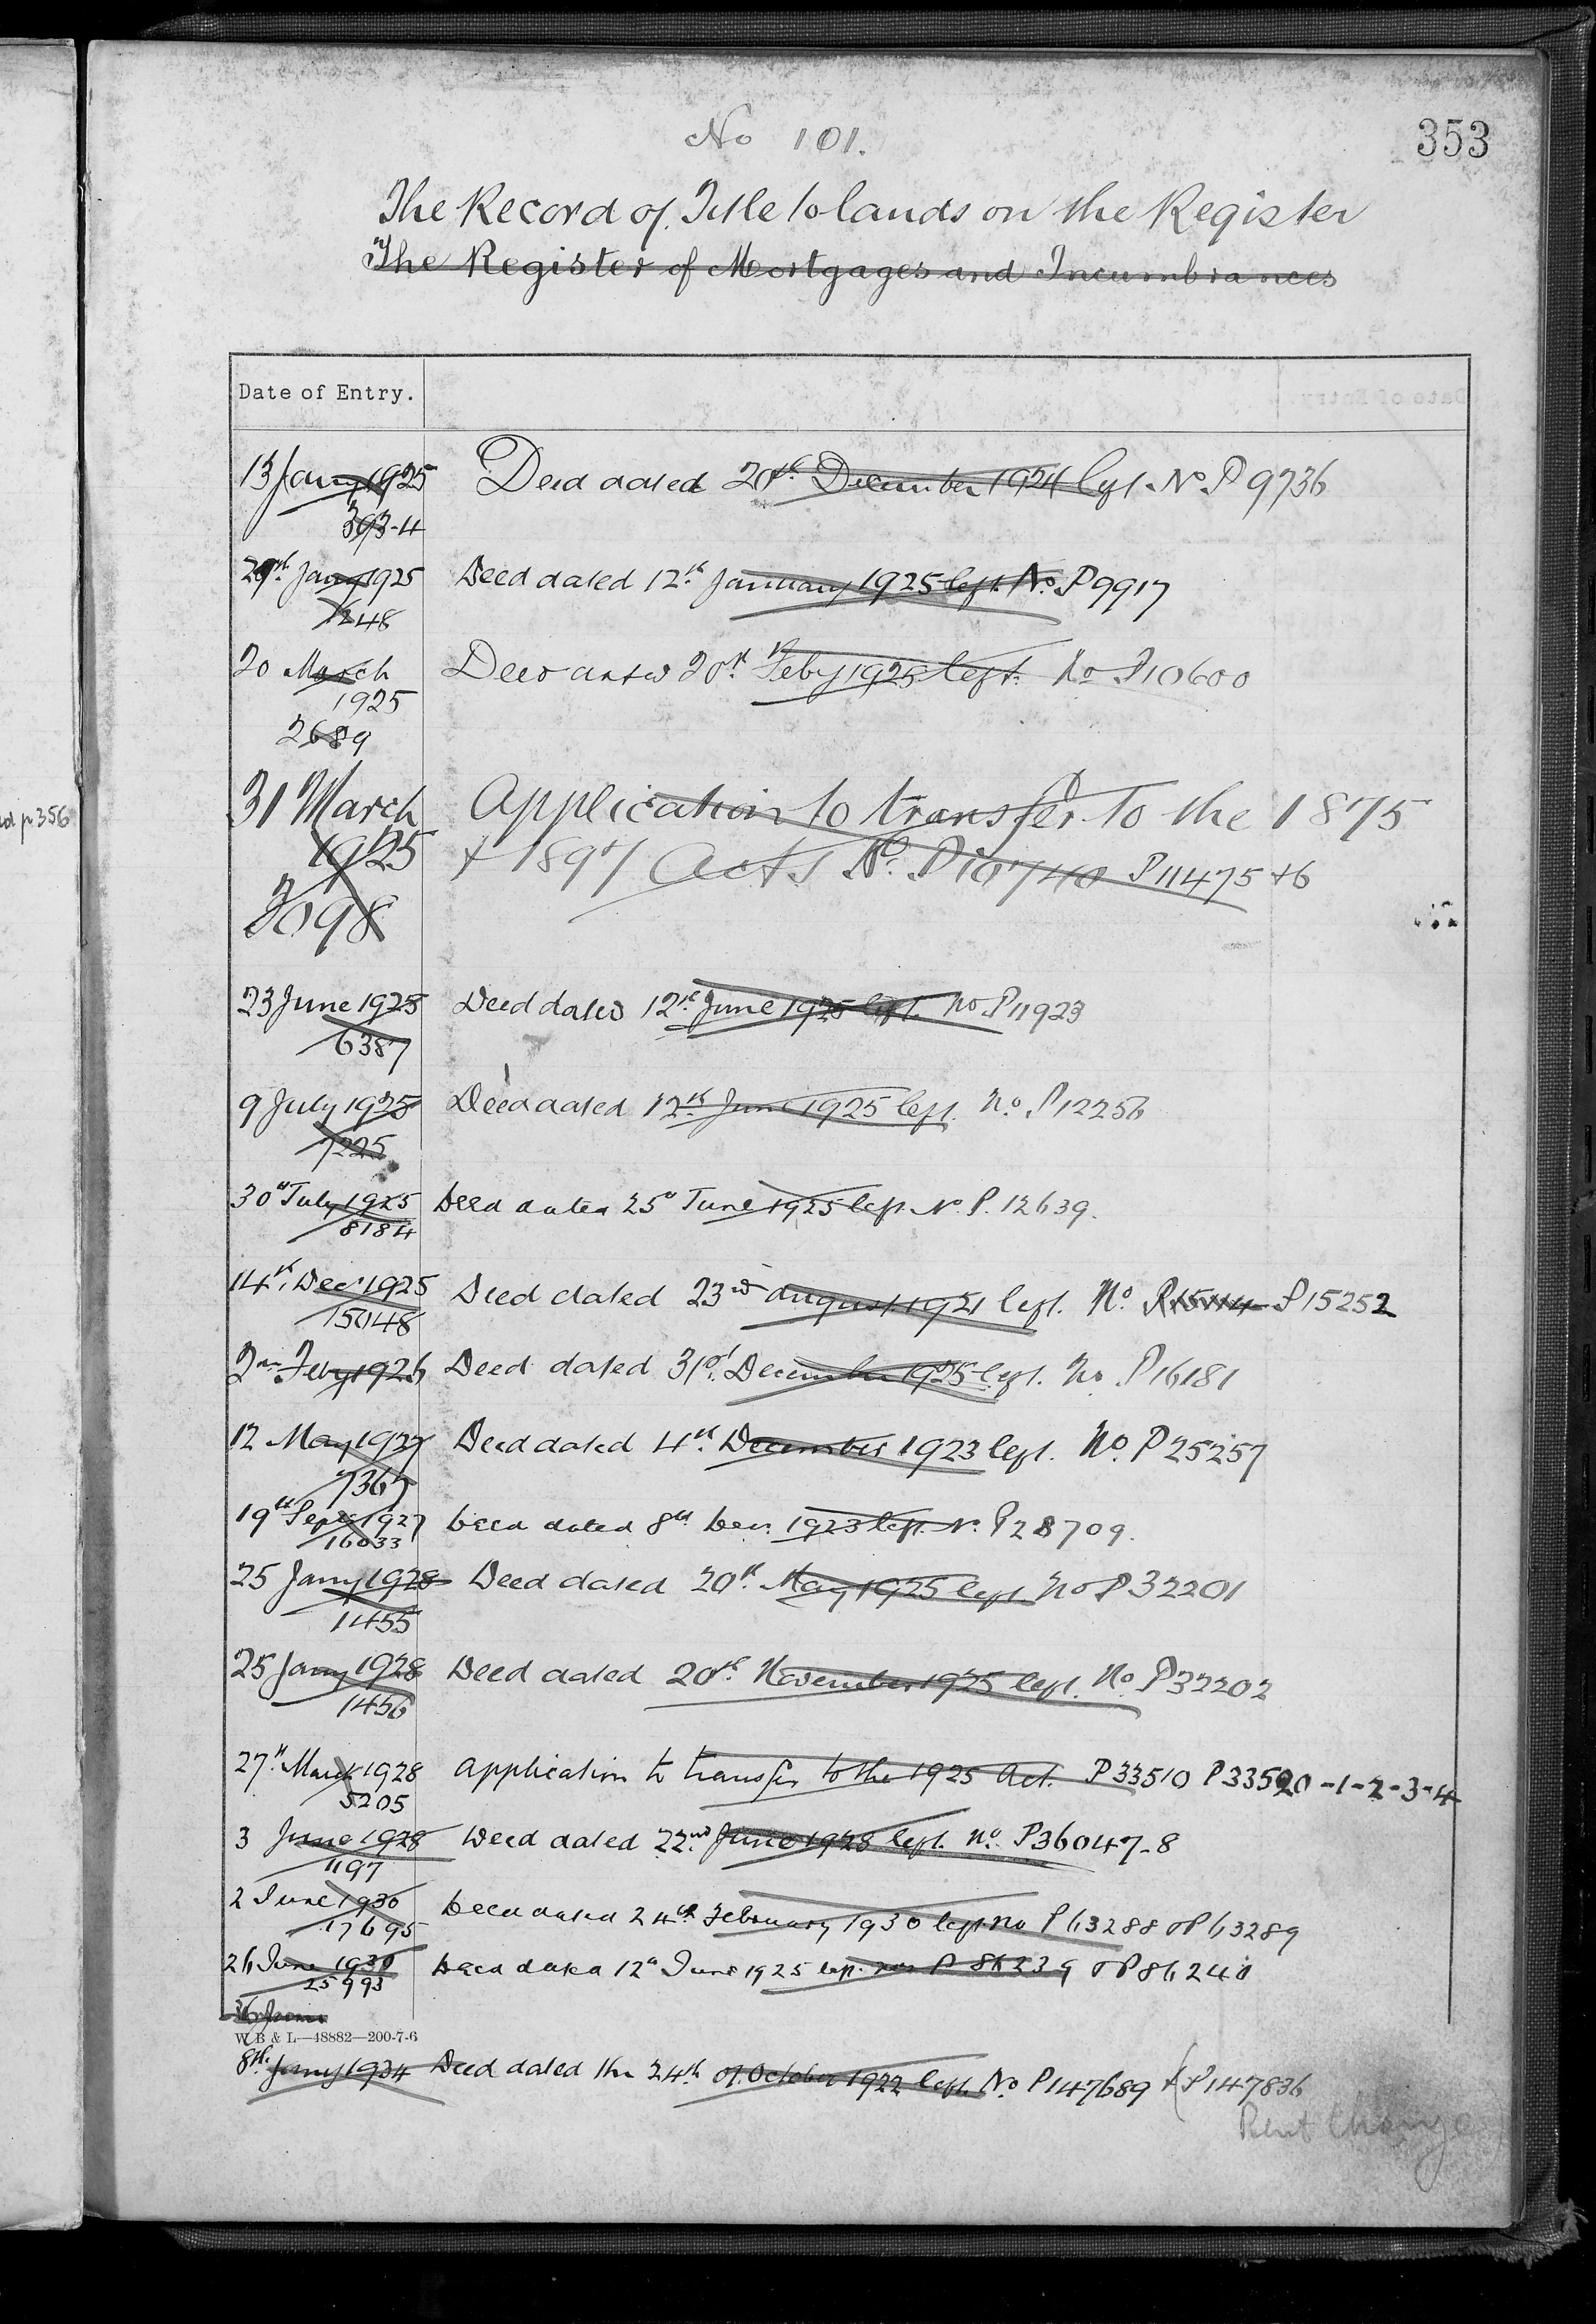 No 101.
353
The Record of Title to lands on the Register
The Register of Mortgages and Incumbrances
Date of Entry.
13 Jany 1925 Deed dated 20th December 1924 left No P 9736
393-4
29th Jany 1925 Deed dated 12th January 1925 left No. P 9917
1248
20 March Deed dated 20th Feby 1925 left. No P10600
1925
2689
31 March Application to transfer to the 1875
1925 + 1897 Acts No. P10740 P11475 +6
3098
p 356
23 June 1925 Deed dated 12th June 1925 left. No P11923
6387
9 July 1925 Deed dated 12th June 1925 left. No. P12256
7225
30th July 1925 Deed dated 25th June 1925 left No. P. 12639.
8184
14th Decr 1925 Deed dated 23rd August 1921 left. No. P15252
15048
2nd Feby 1926 Deed dated 31st December 1925 left. No P16181
12 May 1927 Deed dated 4th December 1923 left. No. P25257
7367
19th Sept 1927 Deed dated 8th Decr. 1923 left No. P28709.
16033
25 Jany 1928 Deed dated 20th May 1925 left No P32201
1455
25 Jany 1928 Deed dated 20th November 1925 left. No. P32202
1456
27th March 1928 Application to transfer to the 1925 Act. P33510 P33520-1-2-3-4
5205
3 June 1928 Deed dated 22nd June 1928 left. No. P36047-8
1197
2 June 1930 Deed dated 24th February 1930 left No P63288 & P63289
17695
26 June 1930 Deed dated 12th June 1925 left. nos P 86239 & P86240
25993
26 June
W B & L—48882—200-7-6
8th. Jany 1934 Deed dated the 24th of October 1922 left. No P147689 & (P147836
Rent Charge